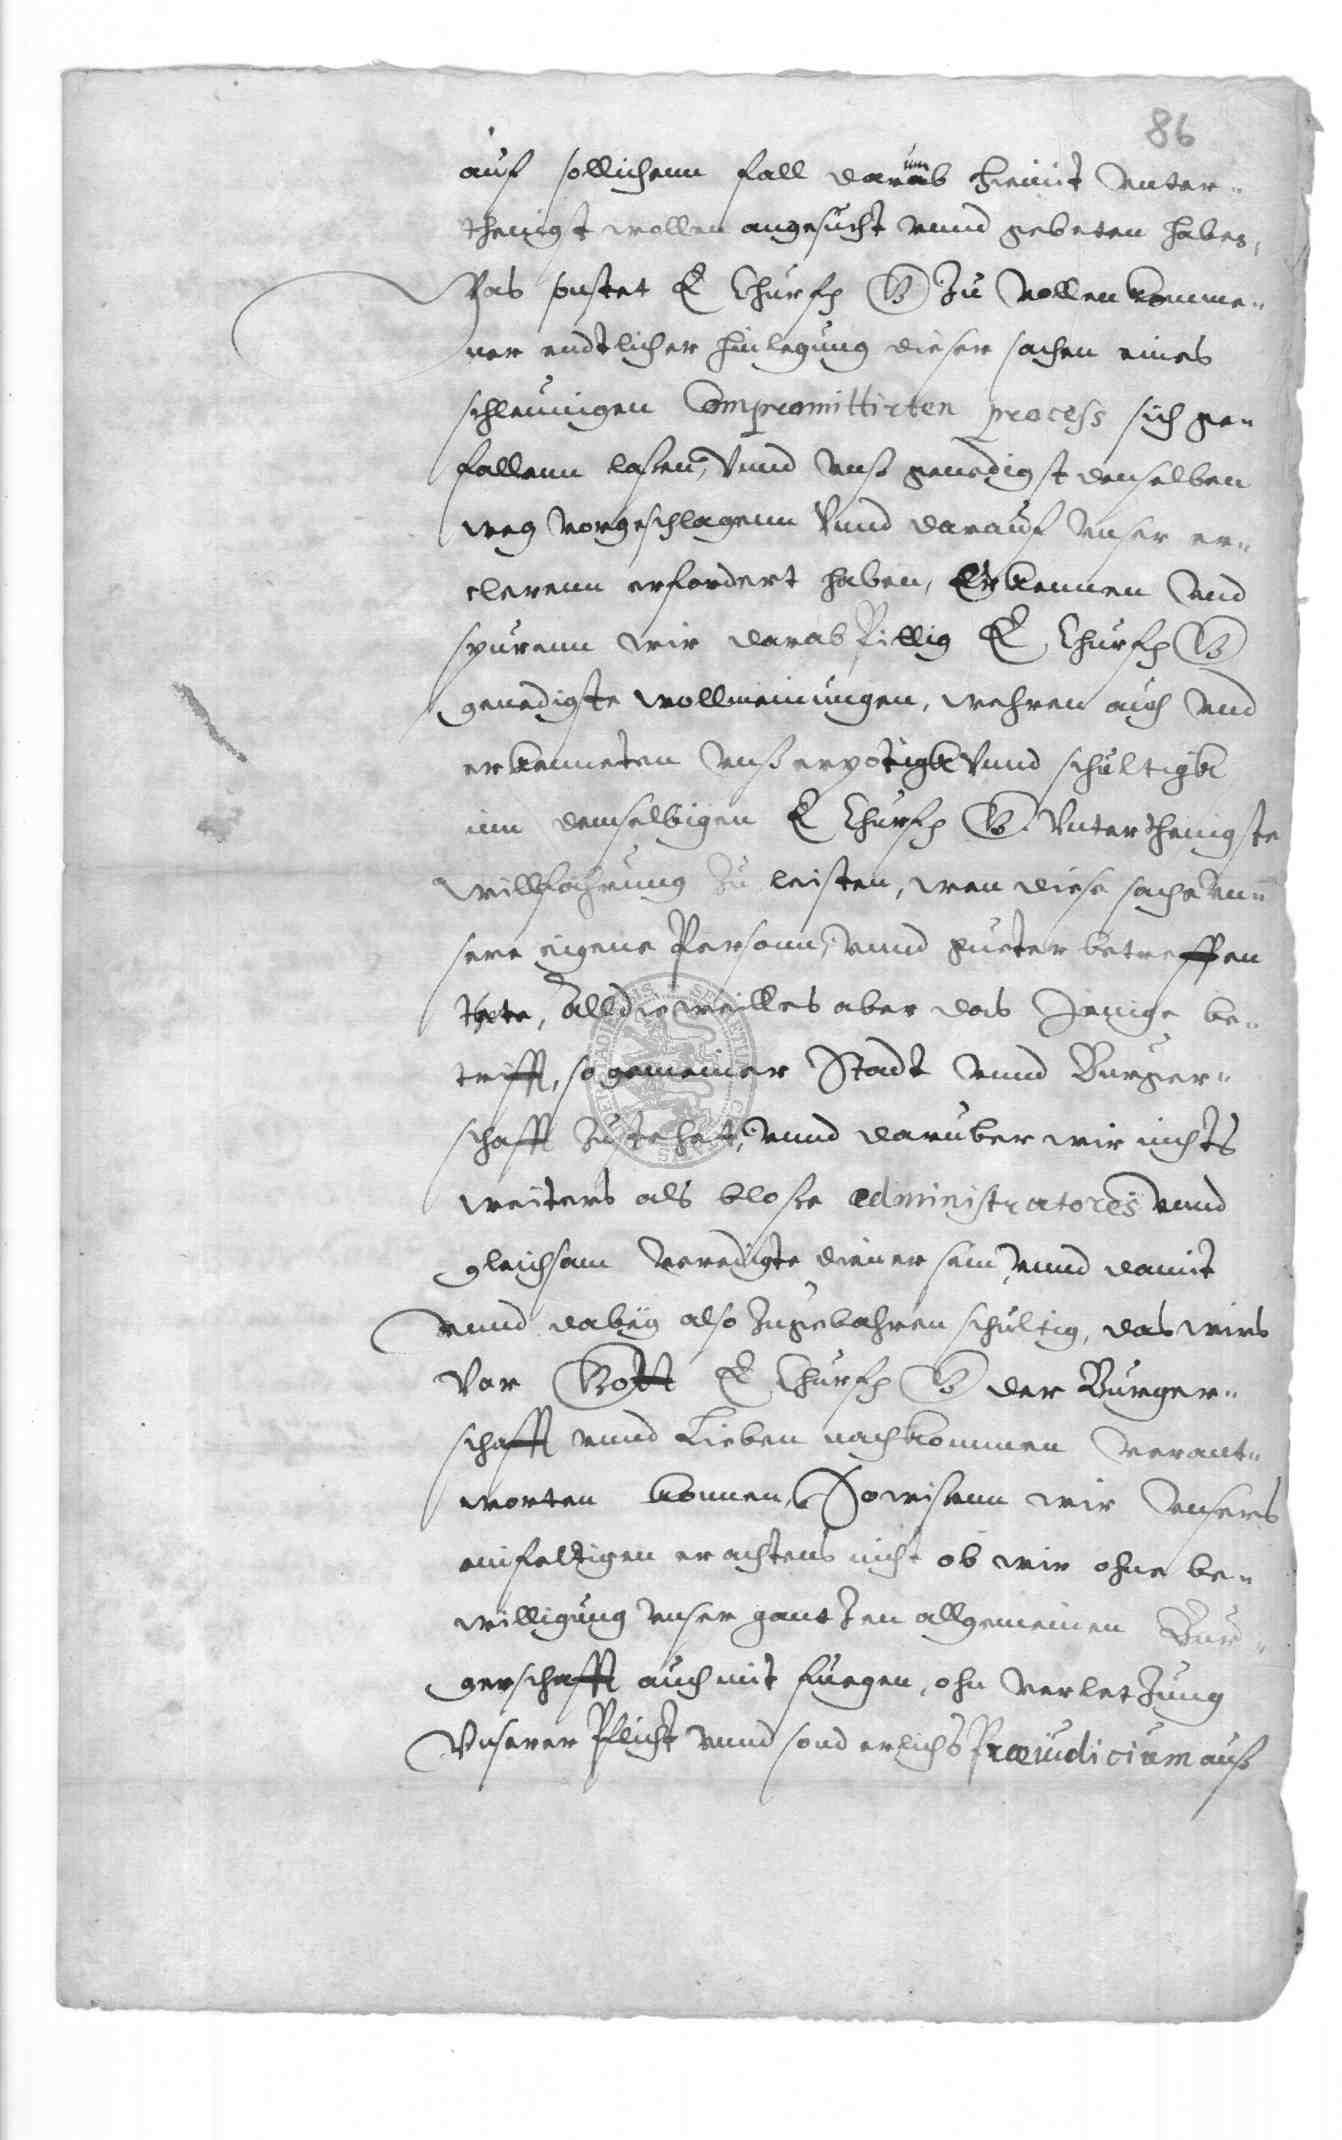 86
auf sollichenn fall darumb hiemit unter-
thenigst wollen angesucht vnnd gebeten haben,
Das sonstet E Churfh G zu vollenkomme-
ner endtlicher hinlegung dieser sachen eines
schleunigen Compromittirten process sich ge-
fallenn lassen, Vnnd vnß genedigst denselben
weg vorgeschlagenn Vnnd darauf vnser er-
clerenn erfordert haben, Erkennen vnd
spurenn wir darab billig E Churfh G
genedigste wollmeinungen, wehren auch vnd
erkenneten vnß erpötigk Vnnd schultigk
inn demselbigen E Churfh G. Vnterthenigste
willfahrung zu leisten, wen diese sache vn-
sere eigene Personn, vnnd gueter betreffen
thete, Alldieweill es aber das Jenige be-
trifft, so gemeiner Stadt vnnd Burger-
schafft zustehet, vnnd daruber wir nichts
weiters als blosse administratores vnnd
gleichsam veredigte diener sein, vnnd damit
vnnd dabey also zugebahren schultig, das wirs
Vor Gott E Churfh G der Burger-
schafft vnnd Lieben nachkommen verant-
worten konnen, So wissenn wir vnsers
einfeltigen erachtens nicht ob wir ohne be-
willigung vnser gantzen allgemeinen Bur-
gerschafft auch mit fuegen, ohn verletzung
Vnserer Pflicht vnnd sonderlichs Præiudicium auß